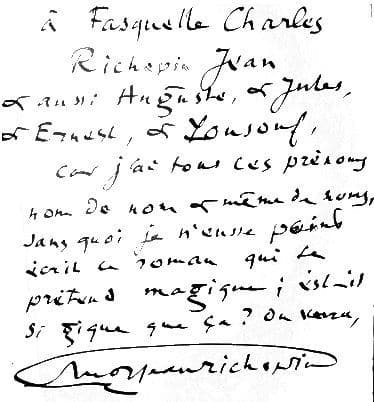 à Fasquelle Charles
Richepin Jean
& aussi Auguste, & Jules,
& Ernest, & Yousouf,
car j'ai tous ces prénoms
nom de nom & même de noms,
sans quoi je n'eusse point
écrit ce roman qui se
prétend magique ; est-il
si gique que ça ? On verra,
Moi Jean Richepin